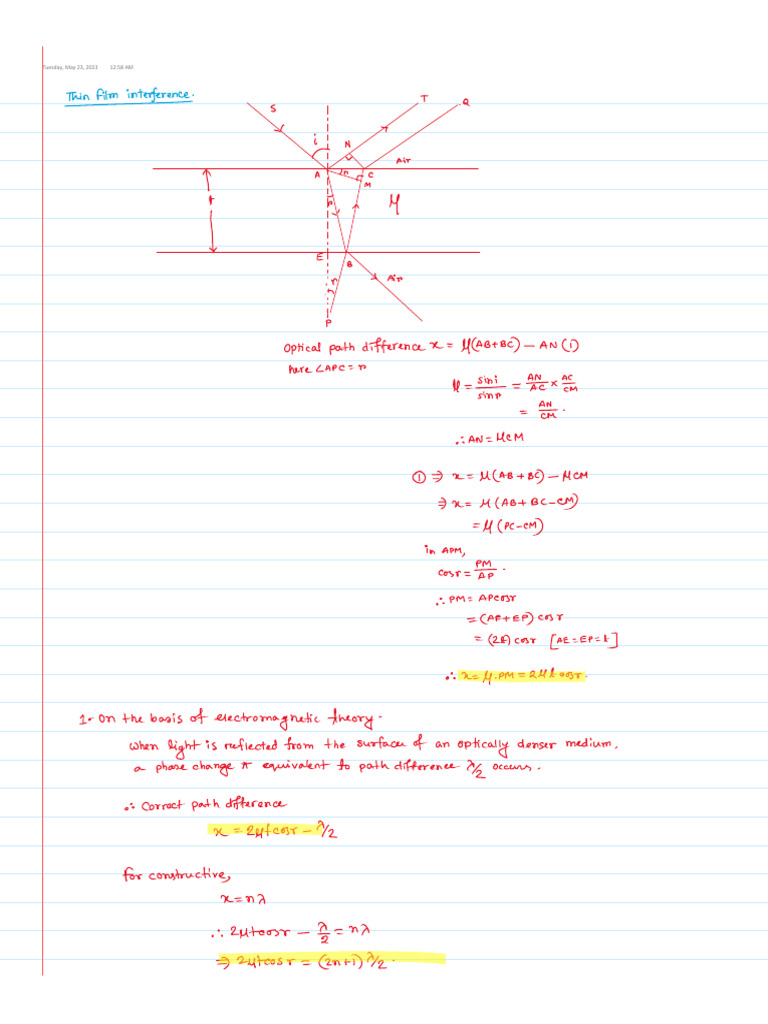 Tuesday, May 23, 2023 12:58 AM
Thin film interference.
S
T
Q
i
N
Air
A
r
C
M
t
r
μ
E
B
r
Air
P
Optical path difference x = μ(AB+BC) — AN (1)
here ∠APC = r
μ = sini/sinr = AN/AC × AC/CM
= AN/CM.
∴ AN = μCM
① ⇒ x = μ(AB + BC) — μCM
⇒ x = μ (AB + BC - CM)
= μ (PC - CM)
in APM,
cosr = PM/AP.
∴ PM = APcosr
= (AE + EP) cosr
= (2t) cosr [AE = EP = t]
∴ x = μ.PM = 2μt cosr.
1. On the basis of electromagnetic theory.
When light is reflected from the surface of an optically denser medium,
a phase change π equivalent to path difference λ/2 occurs.
∴ Correct path difference
x = 2μtcosr — λ/2
for constructive,
x = nλ
∴ 2μtcosr — λ/2 = nλ
⇒ 2μtcosr = (2n+1) λ/2.